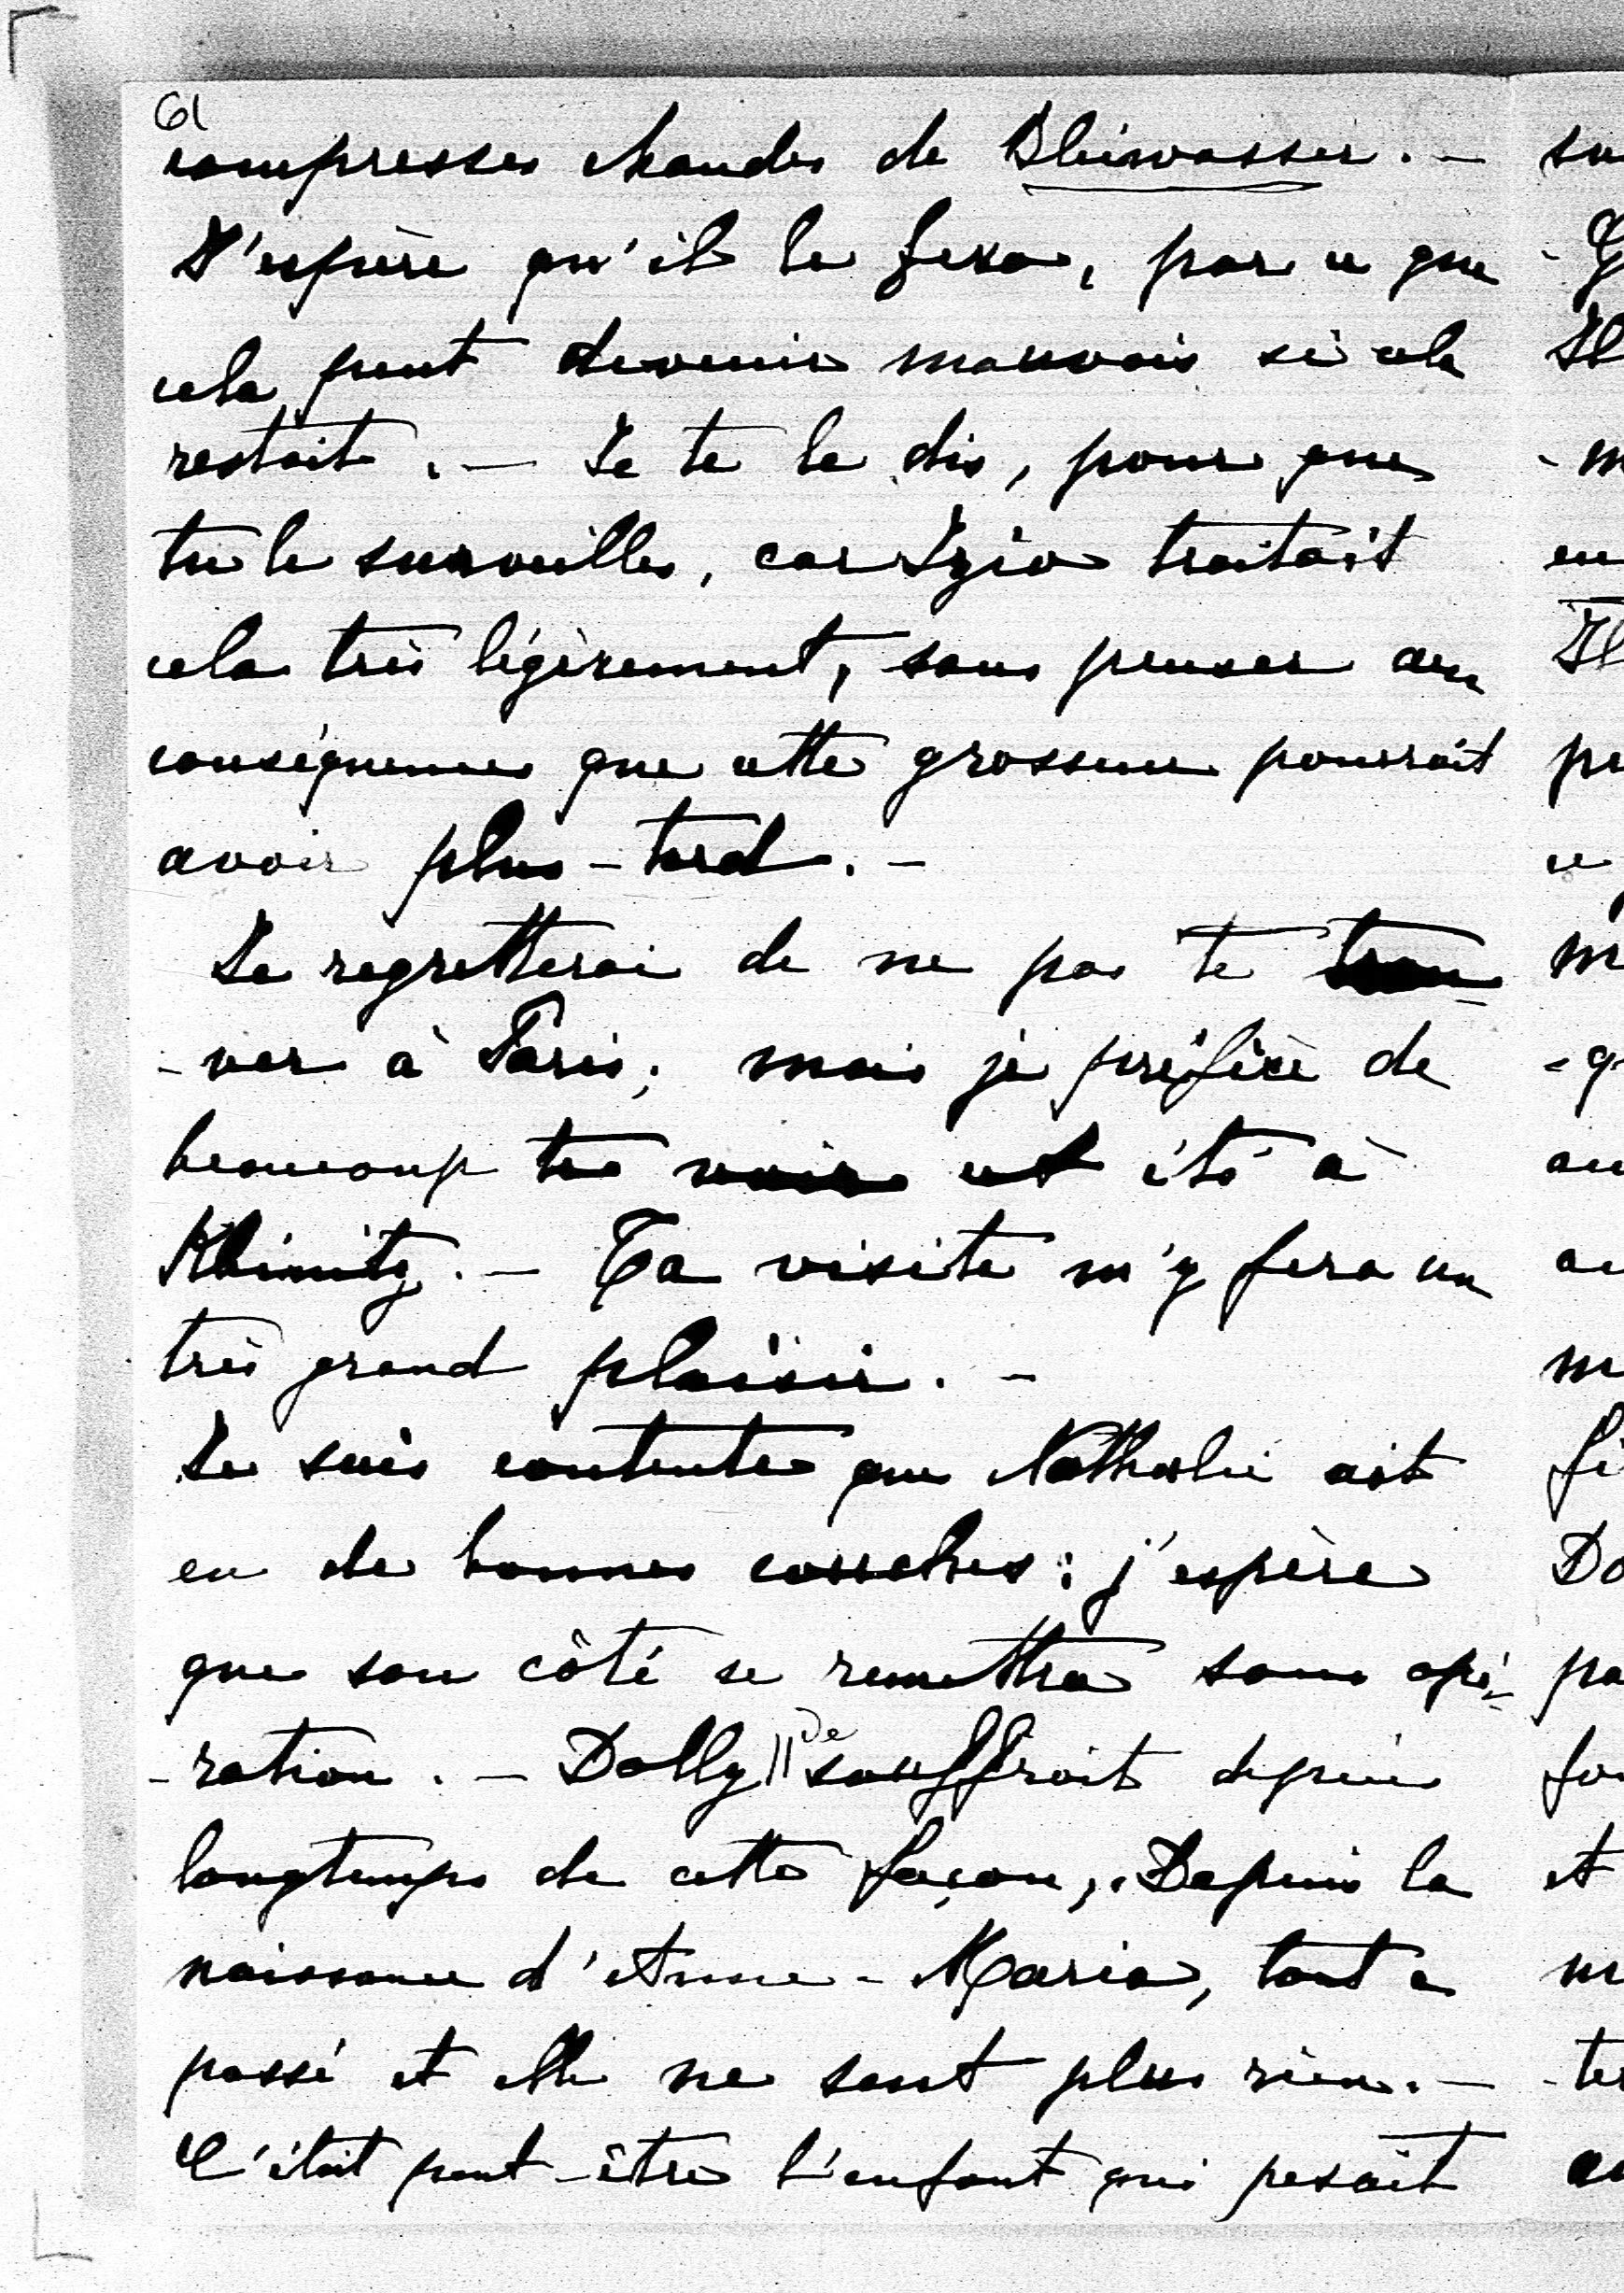 61
compresses chaudes de Bleiwasser. —
J'espère qu'il le fera, par ce que
cela peut devenir mauvais si cela
restait. — Je te le dis, pour que
tu le surveilles, car Izio traitait
cela très légèrement, sans penser aux
conséquences que cette grosseur pourrait
avoir plus-tard. —
Je regretterai de ne pas te trou-
-ver à Paris; mais je préfère de
beaucoup te voir cet été à
. — Ta visite m'y fera un
très grand plaisir. —
Je suis contente que Nathalie ait
eu de bonnes couches: j'espère
que son côté se remettra sans opé-
-ration. — Dolly || De souffrait depuis
longtemps de cette façon, Depuis la
naissance d'Anne-Maria, tout a
passé et elle ne sent plus rien. —
C'était peut-être l'enfant qui pesait